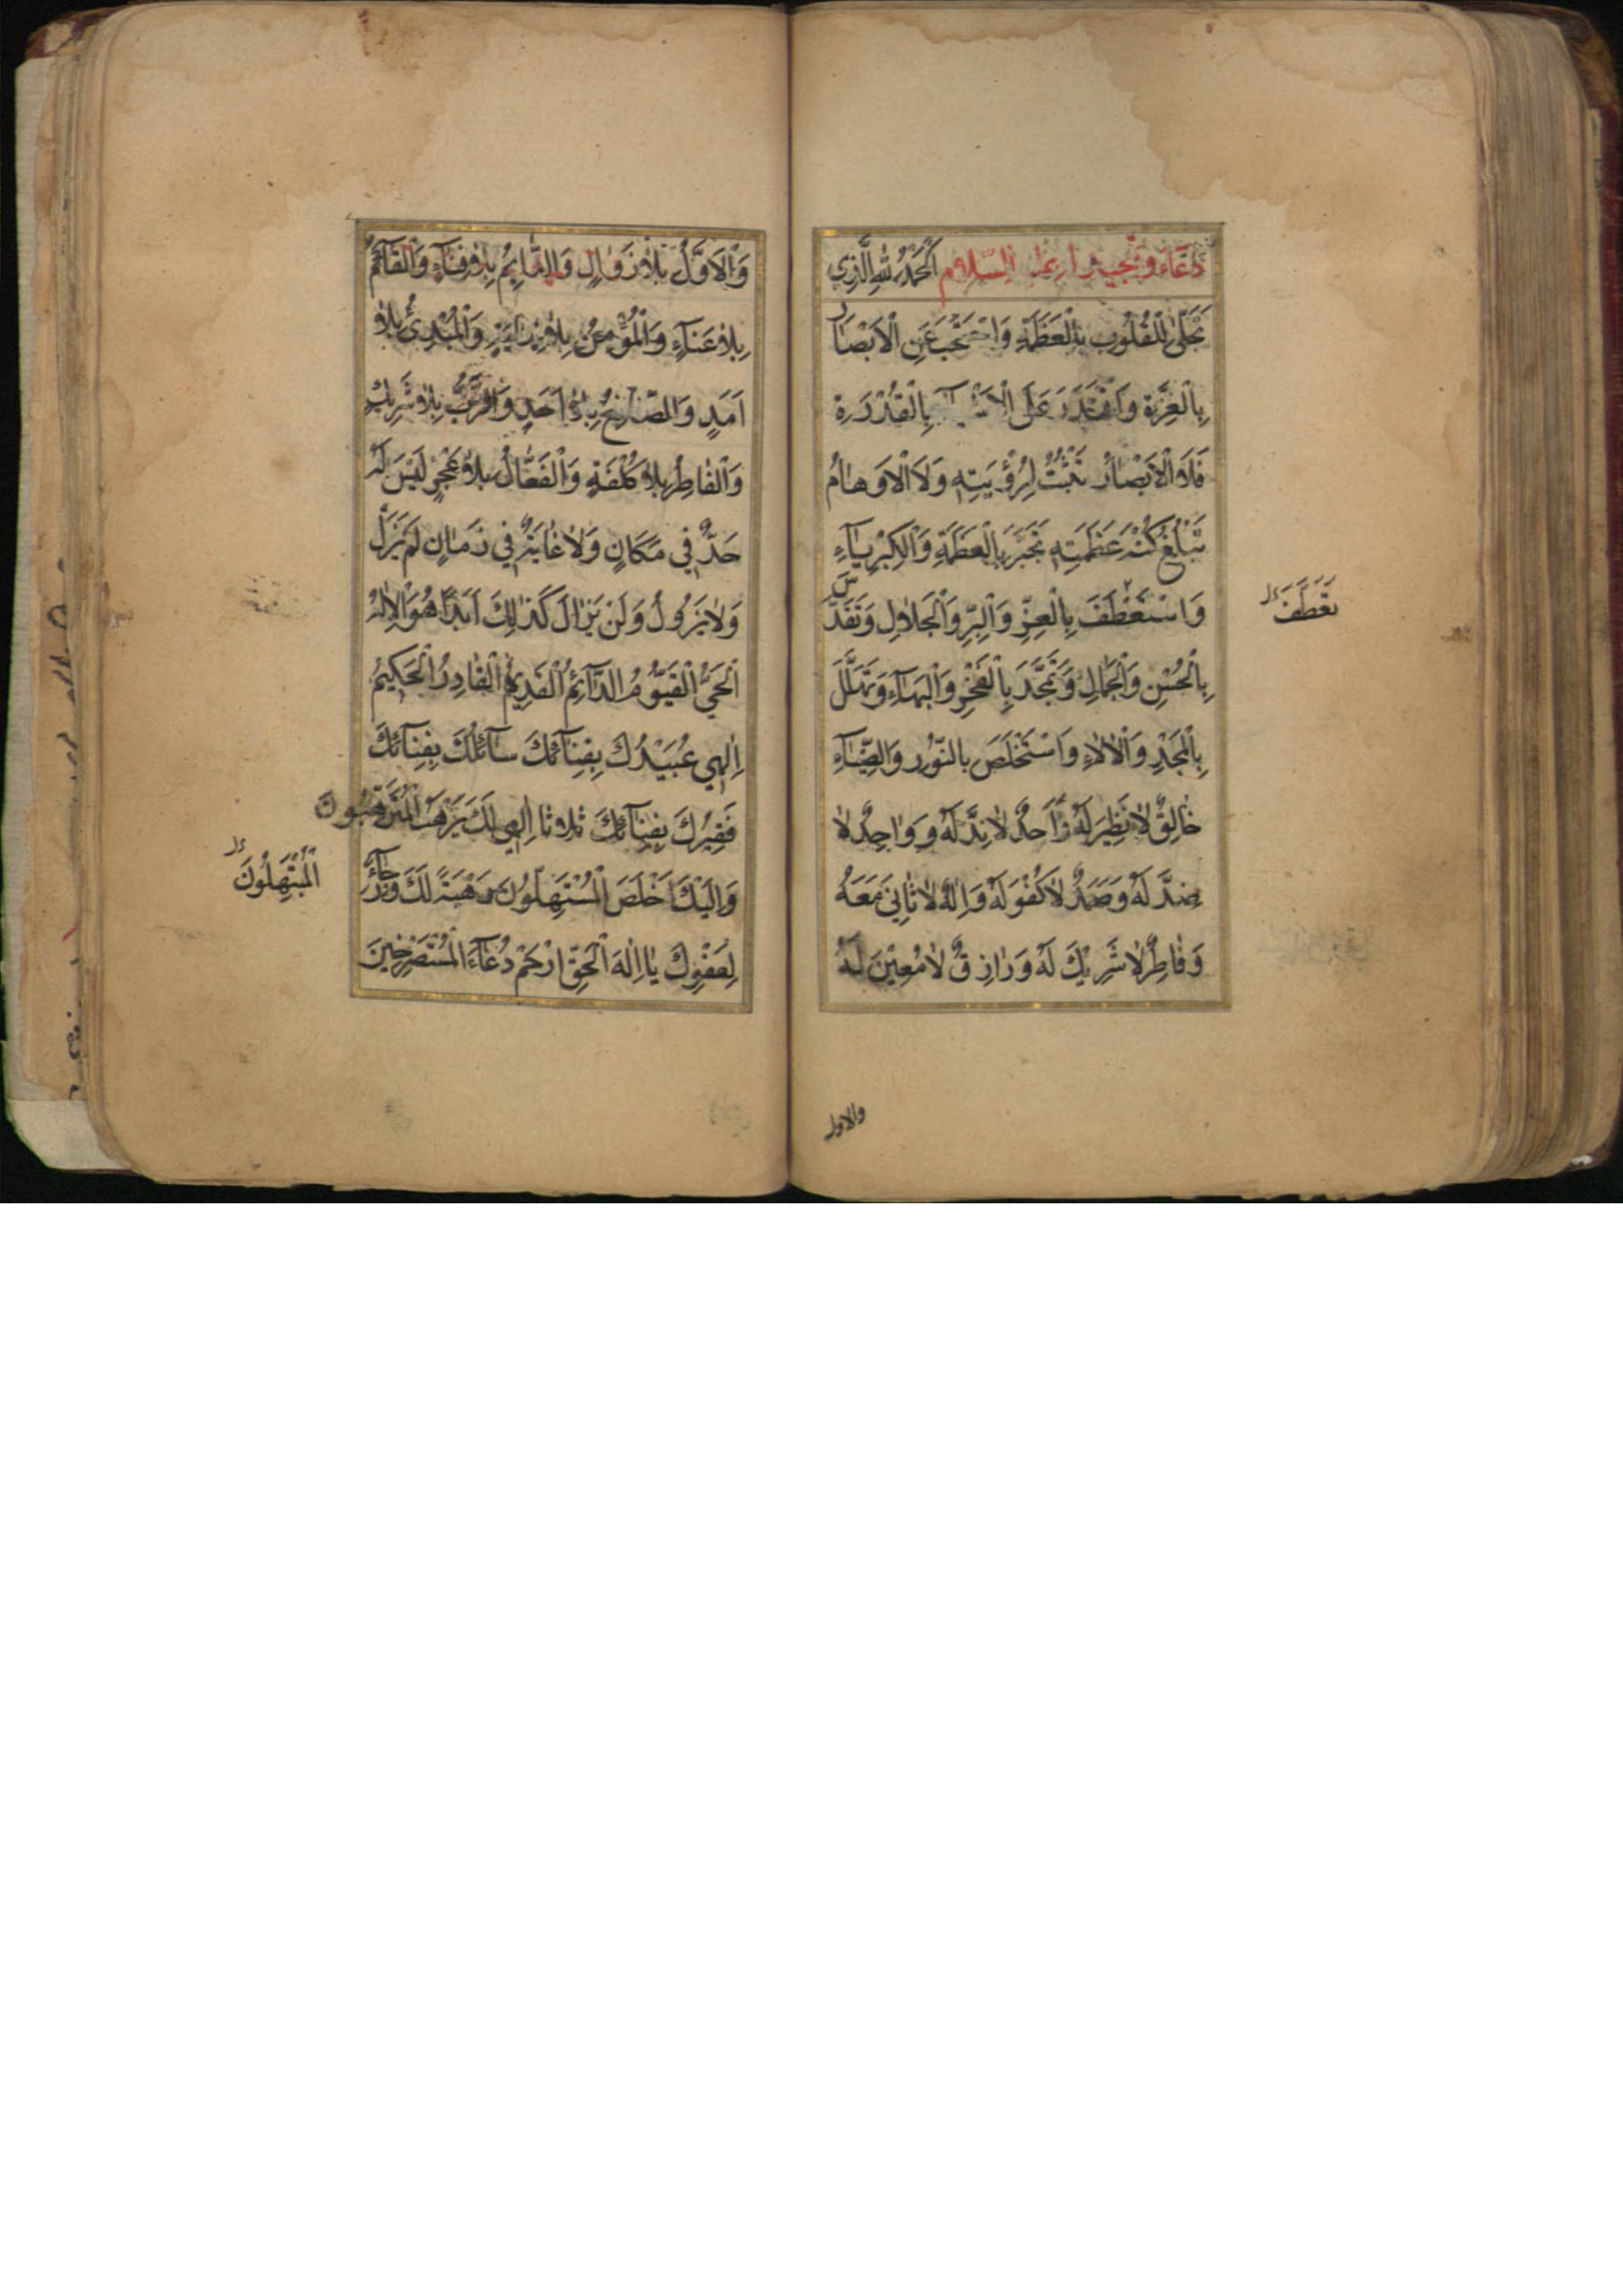 دُعَاءٌ وَتَمْجِيدٌ لَهُ عَلَيْهِ السَّلَامُ اَلْحَمْدُ لِلّٰهِ الَّذِي
تَجَلّٰى لِلْقُلُوبِ بِالْعَظَمَةِ وَاحْتَجَبَ عَنِ الْاَبْصَارِ
بِالْعِزَّةِ وَاقْتَدَرَ عَلَى الْاَشْيَاءِ بِالْقُدْرَةِ
فَلَا الْاَبْصَارُ تَثْبُتُ لِرُؤْيَتِهِ وَلَا الْاَوْهَامُ
تَبْلُغُ كُنْهَ عَظَمَتِهِ تَجَبَّرَ بِالْعَظَمَةِ وَالْكِبْرِيَاءِ
وَاسْتَعْطَفَ بِالْعِزِّ وَالْبِرِّ وَالْجَلَالِ وَتَقَدَّسَ
تَعَطَّفَ
بِالْحُسْنِ وَالْجَمَالِ وَتَمَجَّدَ بِالْفَخْرِ وَالْبَهَاءِ وَتَهَلَّلَ
بِالْمَجْدِ وَالْاٰلَاءِ وَاسْتَخْلَصَ بِالنُّورِ وَالضِّيَاءِ
خَالِقٌ لَا نَظِيرَ لَهُ وَاَحَدٌ لَا نِدَّ لَهُ وَوَاحِدٌ لَا
ضِدَّ لَهُ وَصَمَدٌ لَا كُفْوَ لَهُ وَاِلٰهٌ لَا ثَانِيَ مَعَهُ
وَفَاطِرٌ لَا شَرِيكَ لَهُ وَرَازِقٌ لَا مُعِينَ لَهُ
والاول
وَالْاَوَّلُ بِلَا زَوَالٍ وَالدَّائِمُ بِلَا فَنَاءٍ وَالْقَائِمُ
بِلَا عَنَاءٍ وَالْمُؤْمِنُ بِلَا نِهَايَةٍ وَالْمُبْدِئُ بِلَا
اَمَدٍ وَالصَّانِعُ بِلَا اَحَدٍ وَالرَّبُّ بِلَا شَرِيكٍ
وَالْفَاطِرُ بِلَا كُلْفَةٍ وَالْفَعَّالُ بِلَا عَجْزٍ لَيْسَ لَهُ
حَدٌّ فِي مَكَانٍ وَلَا غَايَةٌ فِي زَمَانٍ لَمْ يَزَلْ
وَلَا يَزُولُ وَلَنْ يَزَالَ كَذٰلِكَ اَبَدًا هُوَ الْاِلٰهُ
الْحَيُّ الْقَيُّومُ الدَّائِمُ الْقَدِيمُ الْقَادِرُ الْحَكِيمُ
اِلٰهِي عُبَيْدُكَ بِفِنَائِكَ سَائِلُكَ بِفِنَائِكَ
فَقِيرُكَ بِفِنَائِكَ ثلاثا اِلٰهِي لَكَ يَرْهَبُ الْمُتَرَهِّبُونَ
وَاِلَيْكَ اَخْلَصَ الْمُسْتَهِلُّونَ رَهْبَةً لَكَ وَرَجَاءً
الْمُبْتَهِلُونَ
لِعَفْوِكَ يَا اِلٰهَ الْحَقِّ ارْحَمْ دُعَاءَ الْمُسْتَصْرِخِينَ